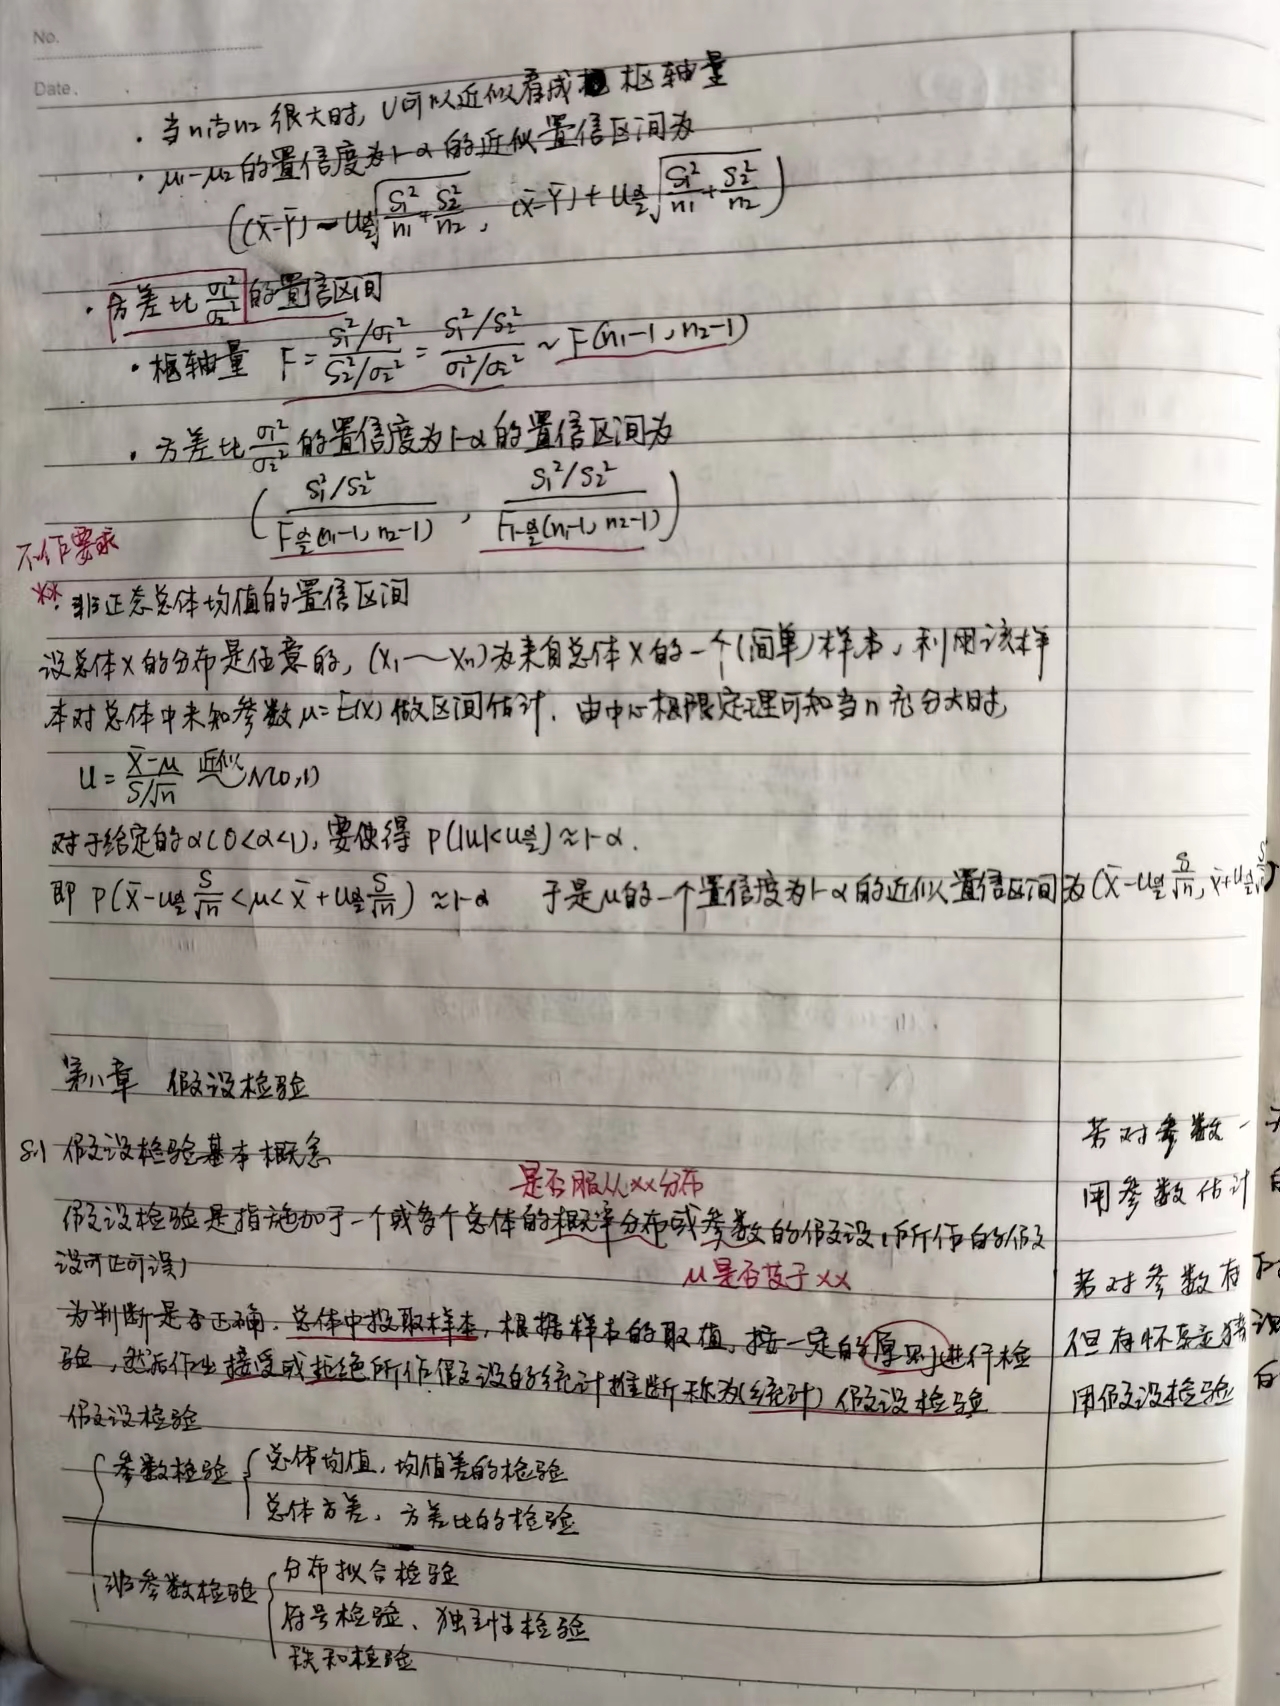 No.
Date.
· 当n1与n2很大时, U可以近似看成枢轴量
· μ1-μ2的置信度为1-α的近似置信区间为
((X̄-Ȳ)-u_{α/2}√(S1²/n1+S2²/n2), (X̄-Ȳ)+u_{α/2}√(S1²/n1+S2²/n2))
· 方差比 σ1²/σ2² 的置信区间
· 枢轴量 F = (S1²/σ1²)/(S2²/σ2²) = (S1²/S2²)/(σ1²/σ2²) ~ F(n1-1, n2-1)
· 方差比 σ1²/σ2² 的置信度为1-α的置信区间为
((S1²/S2²)/F_{α/2}(n1-1, n2-1), (S1²/S2²)/F_{1-α/2}(n1-1, n2-1))
不作要求
**· 非正态总体均值的置信区间
设总体X的分布是任意的, (X1~Xn)为来自总体X的一个(简单)样本, 利用该样
本对总体中未知参数μ=E(X)做区间估计. 由中心极限定理可知当n充分大时,
U = (X̄-μ)/(S/√n) 近似~ N(0,1)
对于给定的α(0<α<1), 要使得 P(|U|<u_{α/2})≈1-α.
即 P(X̄-u_{α/2} S/√n <μ< X̄+u_{α/2} S/√n) ≈1-α 于是μ的一个置信度为1-α的近似置信区间为(X̄-u_{α/2} S/√n, X̄+u_{α/2} S/√n)
第八章 假设检验
§1 假设检验基本概念
是否服从××分布
假设检验是指施加于一个或多个总体的概率分布或参数的假设(所作的假
设可正可误)
μ是否等于××
为判断是否正确, 总体中抽取样本, 根据样本的取值, 按一定的原则进行检
验, 然后作出接受或拒绝所作假设的统计推断称为(统计)假设检验
假设检验
参数检验
总体均值, 均值差的检验
总体方差, 方差比的检验
非参数检验
分布拟合检验
符号检验、独立性检验
秩和检验
若对参数一
用参数估计
若对参数有
但有怀疑猜
用假设检验